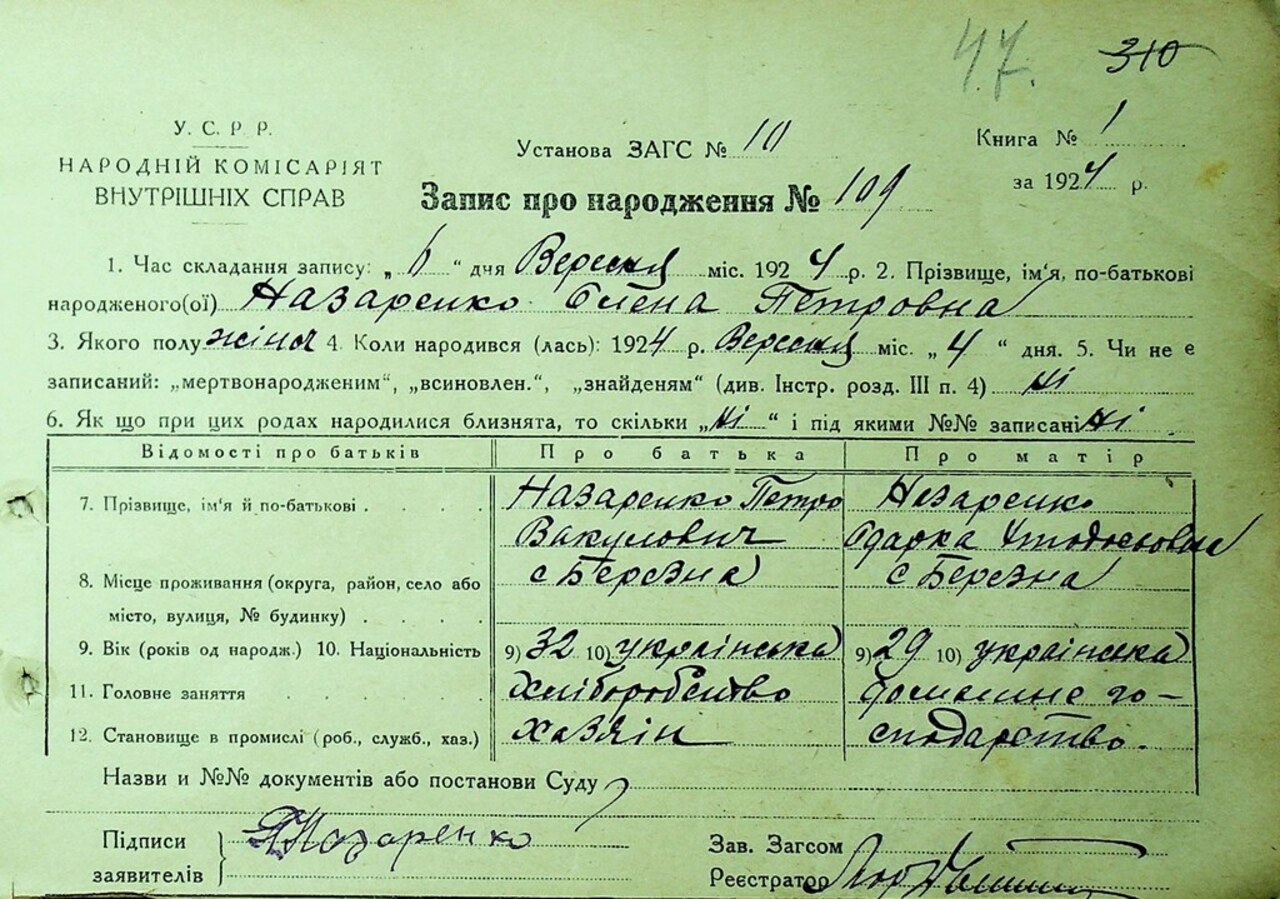 47. 310
У. С. Р. Р.
НАРОДНІЙ КОМІСАРІЯТ
ВНУТРІШНІХ СПРАВ
Установа ЗАГС № 10
Книга № 1
за 1924 р.
Запис про народження № 109
1. Час складання запису: „ 6 “ дня Вересня міс. 1924 р. 2. Прізвище, ім‘я, по-батькові
народженого(ої) Назаренко Олена Петровна
3. Якого полу жіноч 4. Коли народився (лась): 1924 р. Вересня міс. „ 4 “ дня. 5. Чи не є
записаний: „мертвонародженим“, „всиновлен.“, „знайденям“ (див. Інстр. розд. III п. 4) ні
6. Як що при цих родах народилися близнята, то скільки „ні“ і під якими №№ записані ні
Відомості про батьків Про батька Про матір
7. Прізвище, ім‘я й по-батькові . . . . Назаренко Петро Назаренко
Вакулович Одарка
8. Місце проживання (округа, район, село або с Березна с Березна
місто, вулиця, № будинку) . . . .
9. Вік (років од народж.) 10. Національність 9) 32 10) українська 9) 29 10) українська
11. Головне заняття . . . . Хліборобство домашнє го-
12. Становище в промислі (роб., служб., хаз.) хазяін сподарство.
Назви и №№ документів або постанови Суду
Підписи
заявителів
Назаренко
Зав. Загсом
Реєстратор